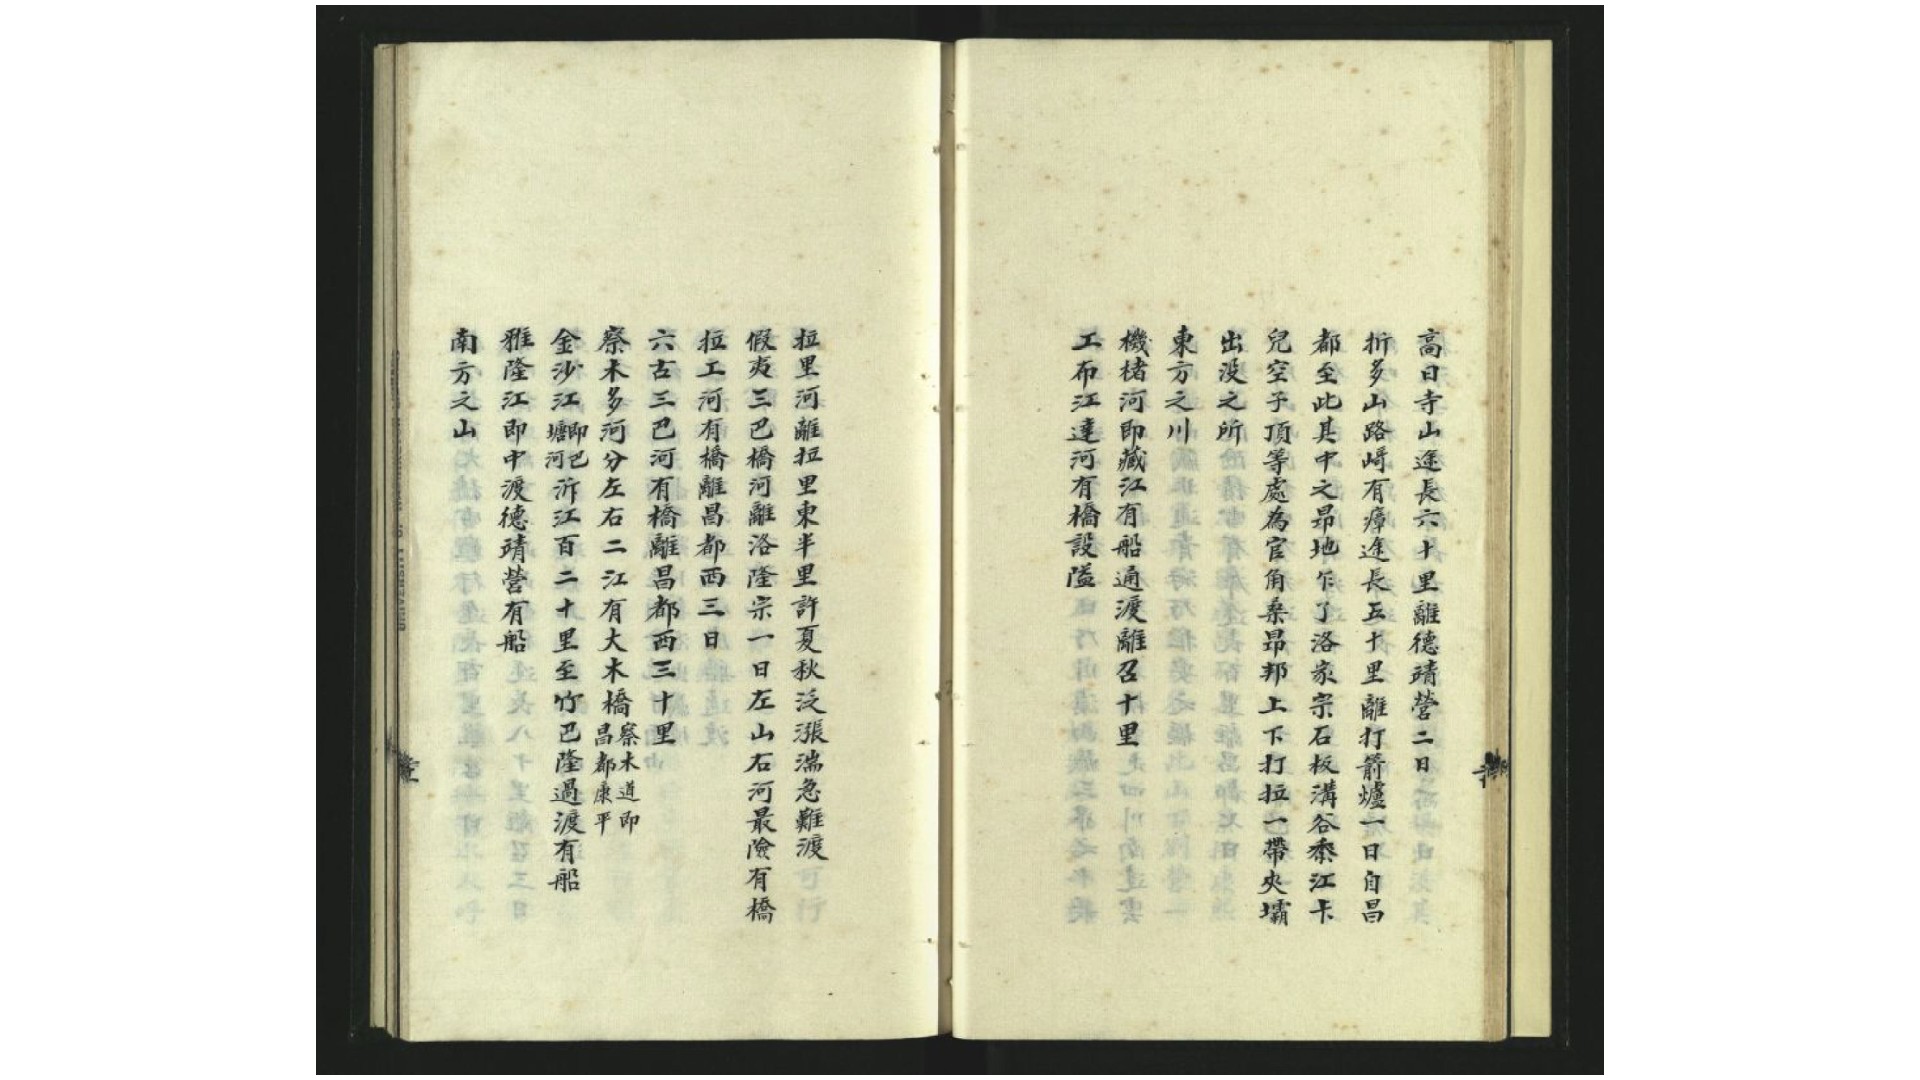 高日寺山途長六十里離德靖營二日
折多山路崎有瘴途長五十里離打箭爐一日自昌
都至此其中之昂地乍了洛家宗石板溝谷黍江卡
兒空子頂等處為官角桑昂邦上下打拉一帶夾壩
出沒之所
東方之川
機楮河即藏江有船通渡離召十里
工布江達河有橋設隘
拉里河離拉里東半里許夏秋泛漲湍急難渡
假夷三巴橋河離洛隆宗一日左山右河最險有橋
拉工河有橋離昌都西三日
六古三巴河有橋離昌都西三十里
察木多河分左右二江有大木橋察木道即昌都康平
金沙江即巴塘河沂江百二十里至竹巴隆過渡有船
雅隆江即中渡德靖營有船
南方之山